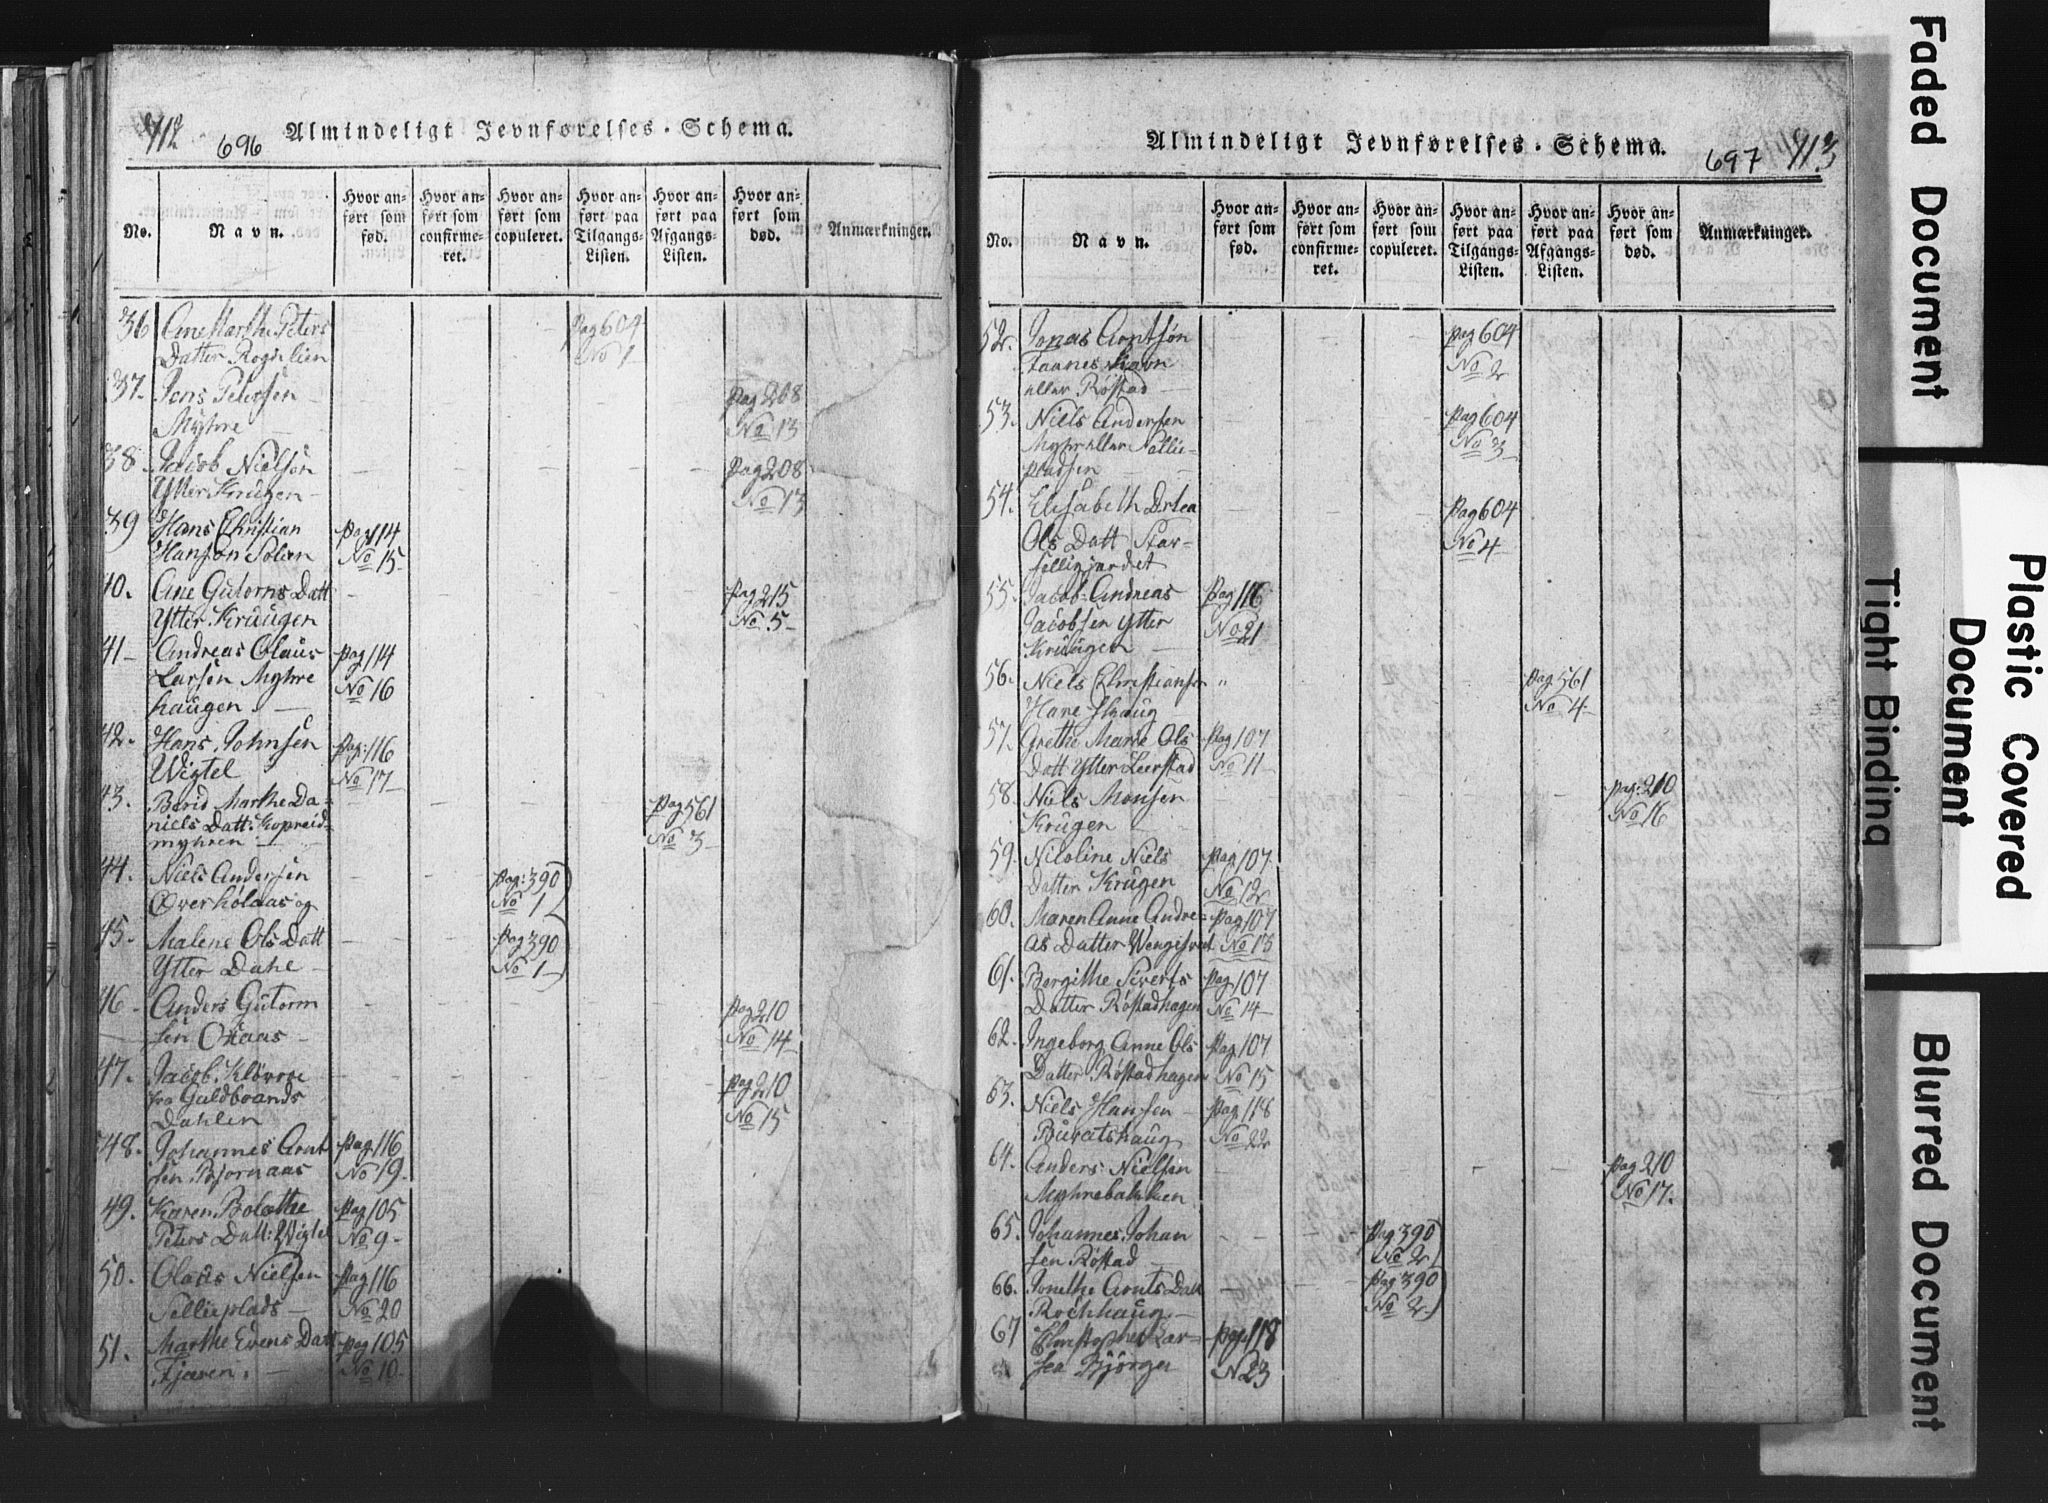 412 696 Almindeligt Jevnførelses-Schema.
No. Navn. Hvor anført som fød. Hvor anført som confirmeret. Hvor anført som copuleret. Hvor anført paa Tilgangs-Listen. Hvor anført paa Afgangs-Listen. Hvor anført som død. Anmærkninger.
36 Ane Marthe Peters pag 604
Datter Rogslien No 1
37. Jens Petersen pag 208
Myhre No 13
38. Jacob Nielsen pag 208
Ytter Krügen No 13
39 Hans Christian pag 114
Hansen No 15
40. Ane Gutorms Datt pag 215
Ytter Krüugen No 5
41 Andreas Olaus pag 114
Larsen Myhre No 16
haugen.
42. Hans Johnsen pag: 116
Wigtel No 17
43. Berid Marthe Da= pag 561
niels Datt: Kopreid= No 3
myhren
44. Niels Andersen pag: 390
Overholaas og No 1
45. Malene Ols Datt pag 390
Ytter Dahl No 1
46 Anders Gutorm pag 210
sen Aaas No 14
47. Jacob pag 210
fra Guldbrands No 15
Dahlen
48. Johannes Arnt pag 116
sen Bjørnaas No 19.
49. Karen Bolethe pag 105
Peters Datt: Wigtel No 9
50. Olaus Nielsen pag 116
Sellieplads No 20
51. Marthe Evens Datt pag 105
Fjæren. No 10
Almindeligt Jevnførelses-Schema. 697 413
No. Navn. Hvor anført som fød. Hvor anført som confirmeret. Hvor anført som copuleret. Hvor anført paa Tilgangs-Listen. Hvor anført paa Afgangs-Listen. Hvor anført som død. Anmærkninger.
52. Jonas Arntsøn pag 604
Faanes Ravn No 2
eller Røstad
53. Niels Andersen pag 604
Myhr eller Sellie= No 3
pladsen
54. Elisabeth Dortea pag 604
Ols Datt No 4
selligjerdet
55. Jacob Andreas pag 116
Jacobsen Ytter No 21
Krüugen
56. Niels Christiansen " pag 561
Hareshaug No 4
57. Grethe Marie Ols pag 107
Datt Ytter Leerstad No 11
58. Niels Monsen pag: 210
Krügen No 16
59. Nicoline Niels pag 107
Datter Krügen No 12
60. Maren Anne Andre= pag 107
as Datter No 13
61. Bergithe Siverts pag 107
Datter Røstadhagen No 14
62. Ingeborg Anne Ols pag 107
Datter Røstadhagen No 15
63. Niels Hansen pag 118
Buratshaug No 22
64. Anders Nielsen pag 210
Myhrebakken No 17.
65. Johannes Johan pag 390
sen Røstad No 2
66. Jonethe Arnts Datt pag 390
Rochhaug No 2
67 Christopher Lar= pag 118
sen Bjørger N 23
Faded Document
Plastic Covered
Document
Tight Binding
Blurred Document